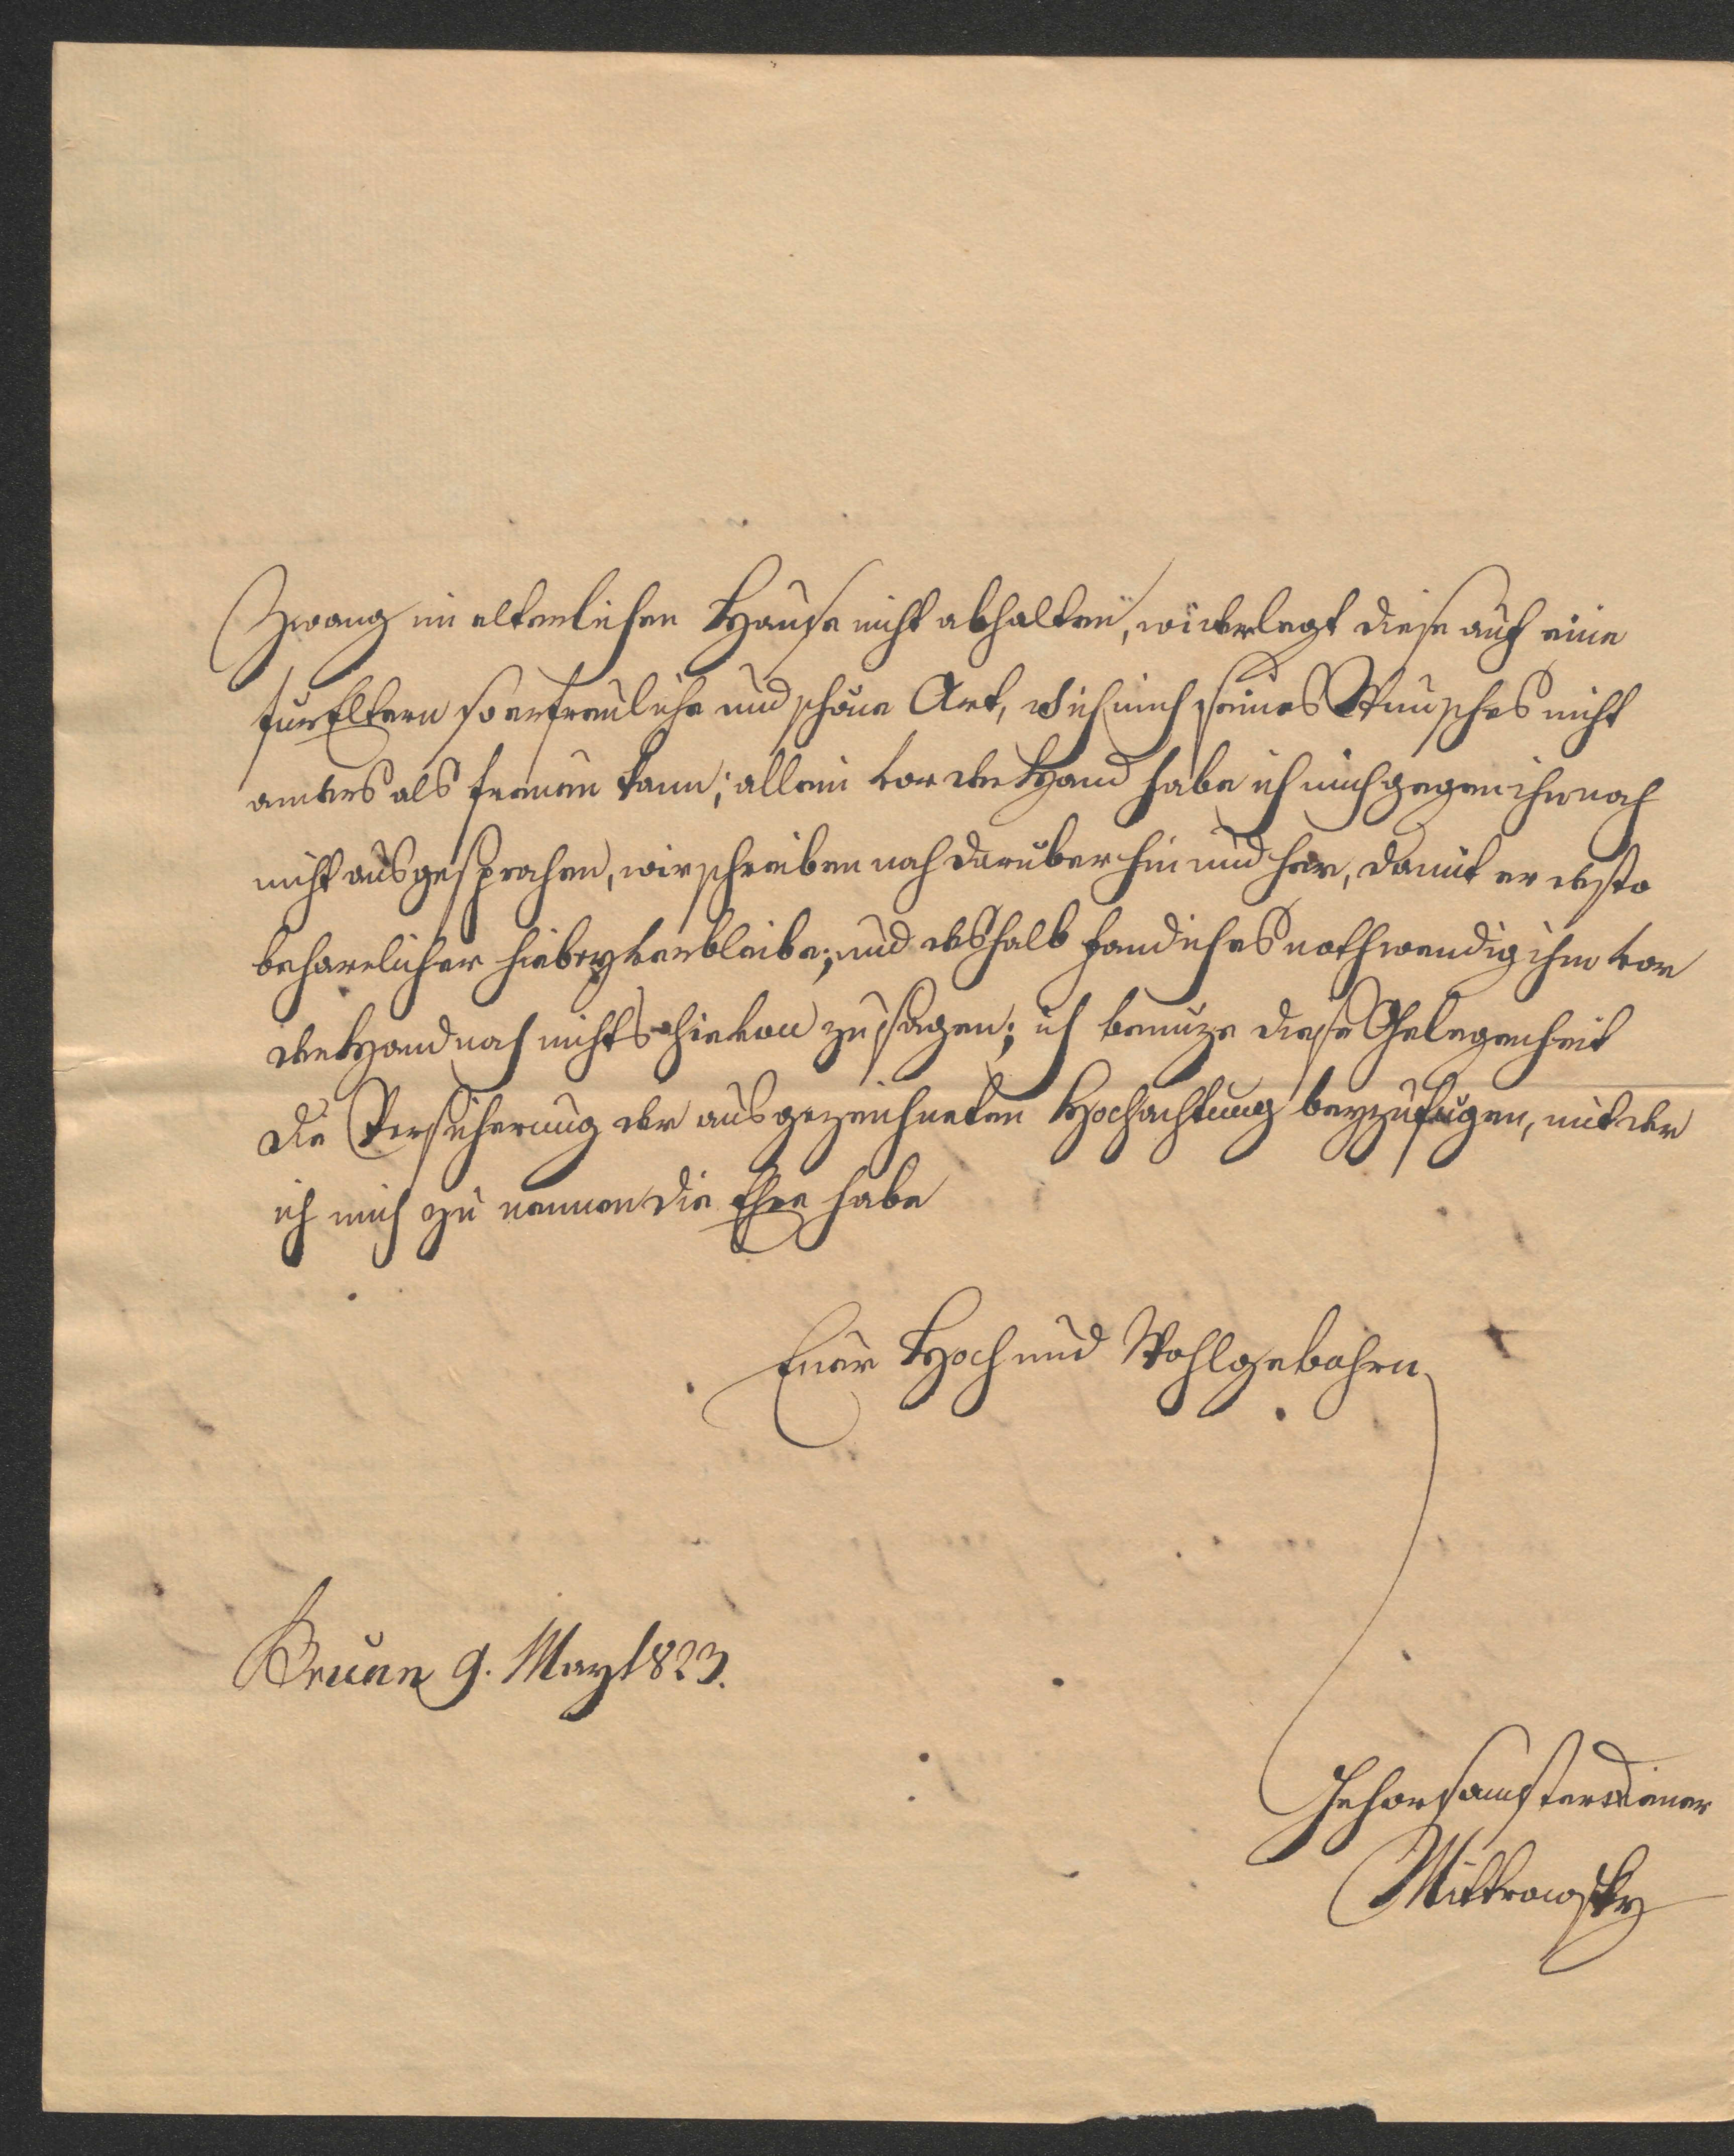 Zwang im elterlichen Hause nicht abhalten, wiederlegt diese auf eine
für Eltern so erfreuliche und schöne Art, d ich mich seines Wunsches nicht
anders als freuen kann; allein vor der Hand habe ich mich gegen ihn noch
nicht ausgesprochen, wir schreiben noch darüber hin und her, damit er desto
beharrlicher hiebey verbleibe; und deshalb fand ich es nothwendig ihm vor
der Hand noch nichts hievon zu sagen; ich benuze diese Gelegenheit
die Versicherung der ausgezeichneten Hochachtung beyzufügen, mit der
ich mich zu nennen die Ehre habe
Euer Hoch und Wohlgebohrn
Brünn 9. May 1823.
Gehorsamster Diener
Mittrowsky